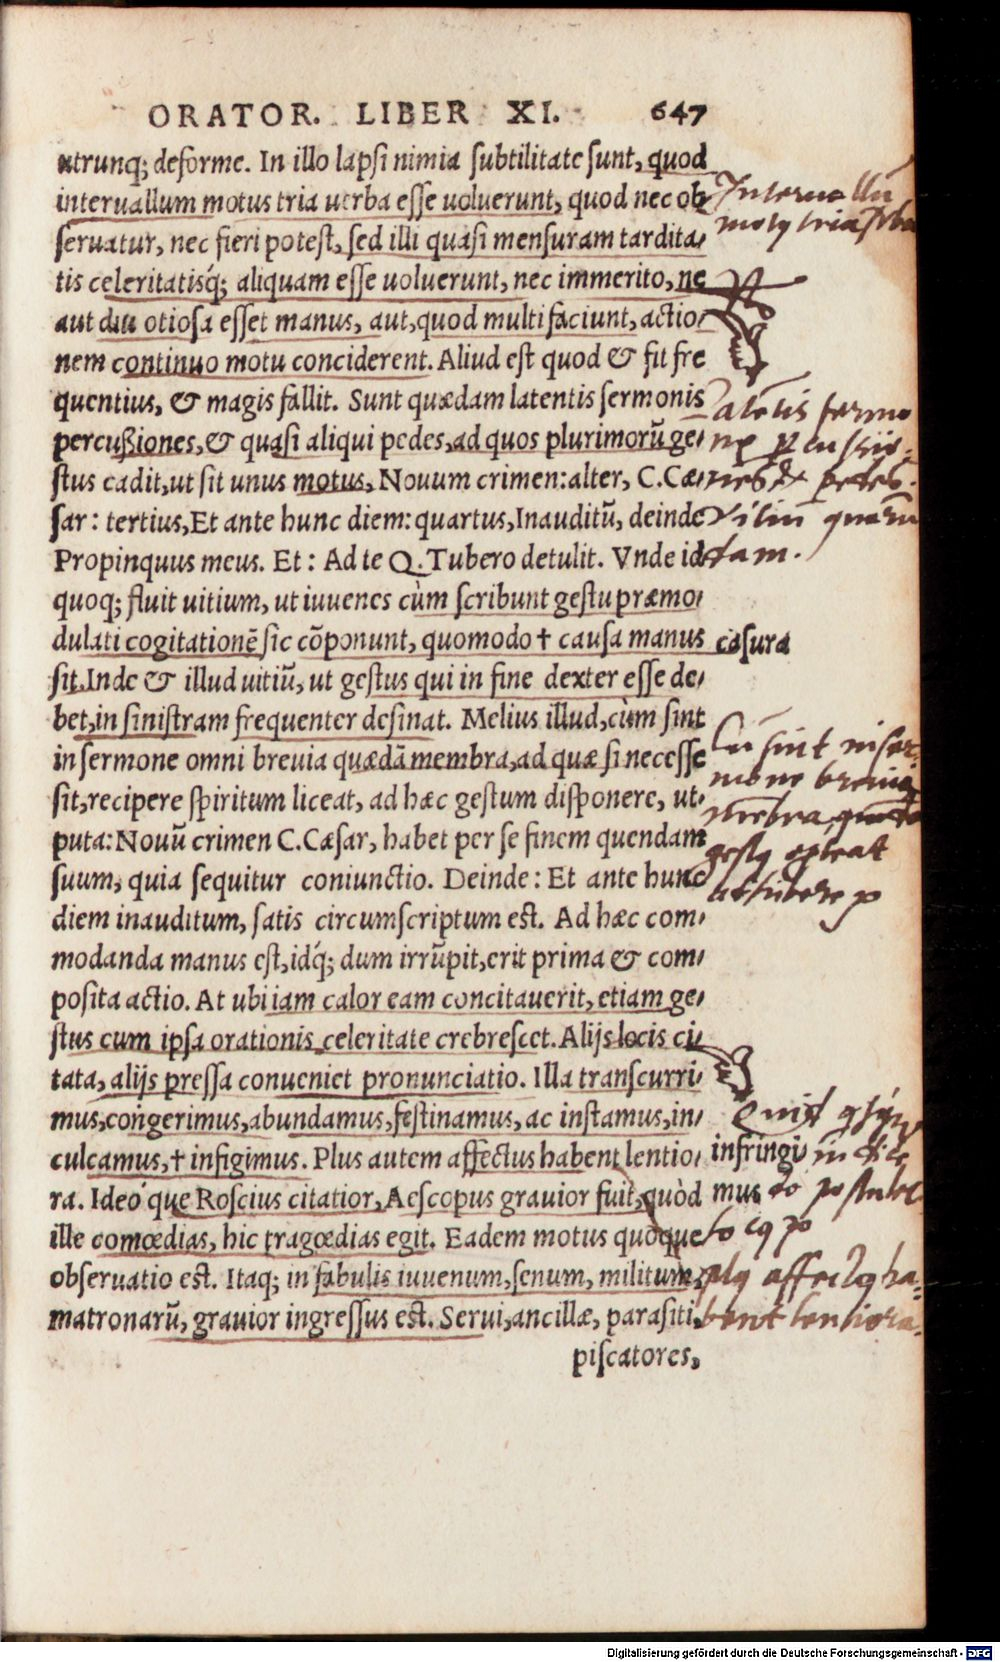 ORATOR. LIBER XI. 647
utrunq; deforme. In illo lapsi nimia subtilitate sunt, quod
interuallum motus tria uerba esse uoluerunt, quod nec ob
seruatur, nec fieri potest, sed illi quasi mensuram tardita-
tis celeritatisq́; aliquam esse uoluerunt, nec immerito, ne
aut diu otiosa esset manus, aut, quod multi faciunt, actio-
nem continuo motu conciderent. Aliud est quod & fit fre
quentius, & magis fallit. Sunt quædam latentis sermonis
percußiones, & quasi aliqui pedes, ad quos plurimorũ ge-
stus cadit, ut sit unus motus, Nouum crimen: alter, C. Cæ-
sar: tertius, Et ante hunc diem: quartus, Inauditũ, deinde
Propinquus meus. Et: Ad te Q. Tubero detulit. Vnde id
quoq; fluit uitium, ut iuuenes cùm scribunt gestu præmo-
dulati cogitationẽ sic cõponunt, quomodo † causa manus
sit. Inde & illud uitiũ, ut gestus qui in fine dexter esse de-
bet, in sinistram frequenter desinat. Melius illud, cùm sint
in sermone omni breuia quædã membra, ad quæ si necesse
sit, recipere spiritum liceat, ad hæc gestum disponere, ut-
puta: Nouũ crimen C. Cæsar, habet per se finem quendam
suum, quia sequitur coniunctio. Deinde: Et ante hunc
diem inauditum, satis circumscriptum est. Ad hæc com-
modanda manus est, idq́; dum irrũpit, erit prima & com-
posita actio. At ubi iam calor eam concitauerit, etiam ge-
stus cum ipsa orationis celeritate crebrescet. Alijs locis ci-
tata, alijs pressa conueniet pronunciatio. Illa transcurri-
mus, congerimus, abundamus, festinamus, ac instamus, in-
culcamus, † infigimus. Plus autem affectus habent lentio-
ra. Ideo´que Roscius citatior, Aescopus grauior fuit, quòd
ille comœdias, hic tragœdias egit. Eadem motus quoque
obseruatio est. Itaq; in fabulis iuuenum, senum, militum,
matronarũ, grauior ingressus est. Serui, ancillæ, parasiti,
piscatores,
Interuallũ
motq tria
latẽtis sermo
&
vitiu
casura
Cũ sint in ser-
mone breuia
mẽbra
gestq
infringi-
mus
plq affectq ha-
bent lentiora.
Digitalisierung gefördert durch die Deutsche Forschungsgemeinschaft - DFG